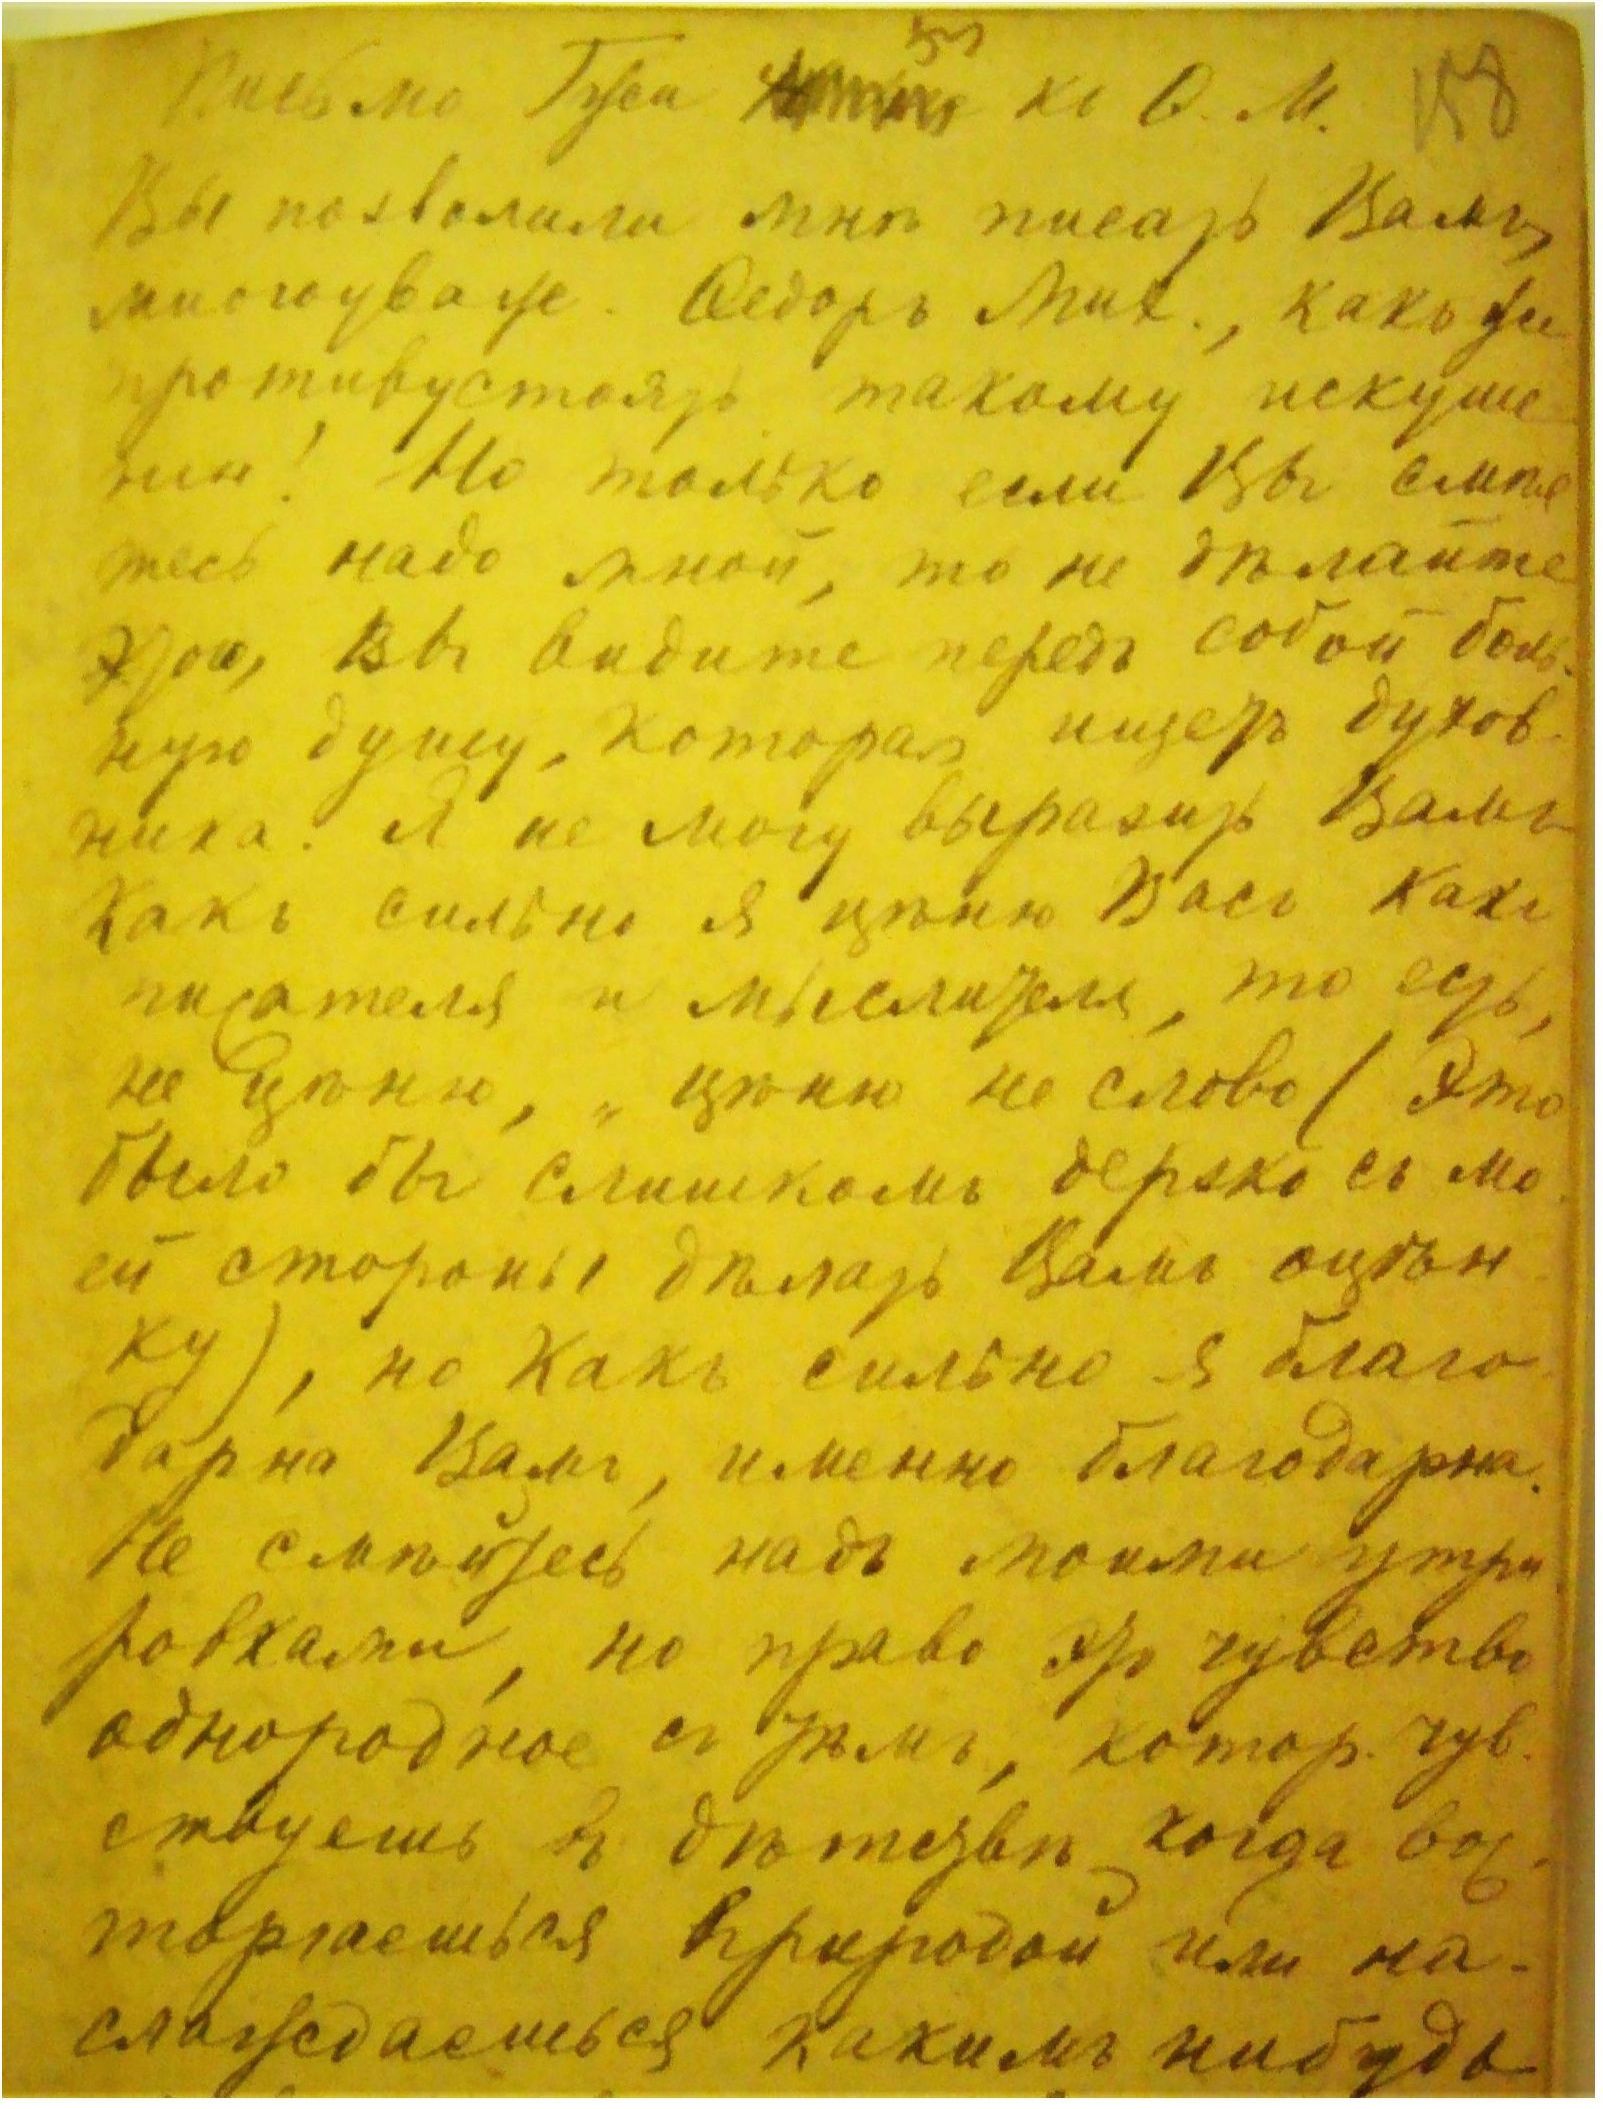 Письмо Гжи къ Ѳ. М. 158
Вы позволили мнѣ писать Вамъ,
многоуваже. Ѳедоръ Мих., какъ же
противустоять такому искуше
нію! Но только если Вы смѣе
тесь надо мной, то не дѣлайте
этого, Вы видите передъ собой боль-
ную душу, которая ищетъ духов-
ника. Я не могу выразить Вамъ
какъ сильно я цѣню Васъ какъ
писателя и мыслителя, то есть,
не цѣню, „ цѣню не слово (Это
было бы слишкомъ дерзко съ мо-
ей стороны дѣлать Вамъ оцѣн
ку), но какъ сильно я благо
дарна Вамъ, именно благодарна.
Не смѣйтесь надъ моими утри
ровками, но право это чувство
однородное съ тѣмъ, котор. чув-
ствуешь въ дѣтствѣ когда вос-
торгаешься природой или на-
слаждаешься какимъ нибудь